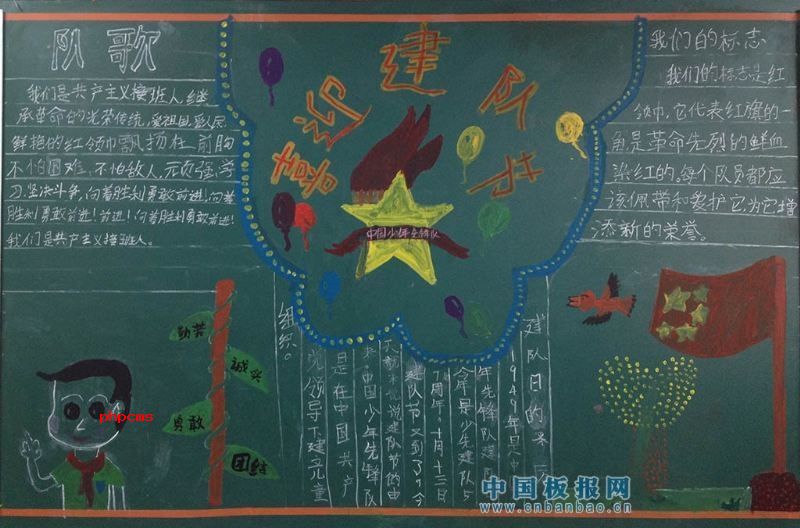 队歌
我们是共产主义接班人,继
承革命的光荣传统,爱祖国,爱人民
鲜艳的红领巾飘扬在前胸
不怕困难,不怕敌人,顽强学
习,坚决斗争,向着胜利勇敢前进,向着
胜利勇敢前进!前进!向着胜利勇敢前进!
我们是共产主义接班人。
喜迎建队节
中国少年先锋队
我们的标志
我们的标志是红
领巾,它代表红旗的一
角是革命先烈的鲜血
染红的,每个队员都应
该佩带和爱护它,为它增
添新的荣誉。
建队日的来
1949年是中
年先锋队建
今年是少先建队
周年,十月十三日
建队节又到了,今
天就来说说建队节的由
来,中国少年先锋队
是在中国共产
党领导下建立童
组织。
勤劳
诚实
勇敢
团结
phpcms
中国板报网
www.cnbanbao.cn